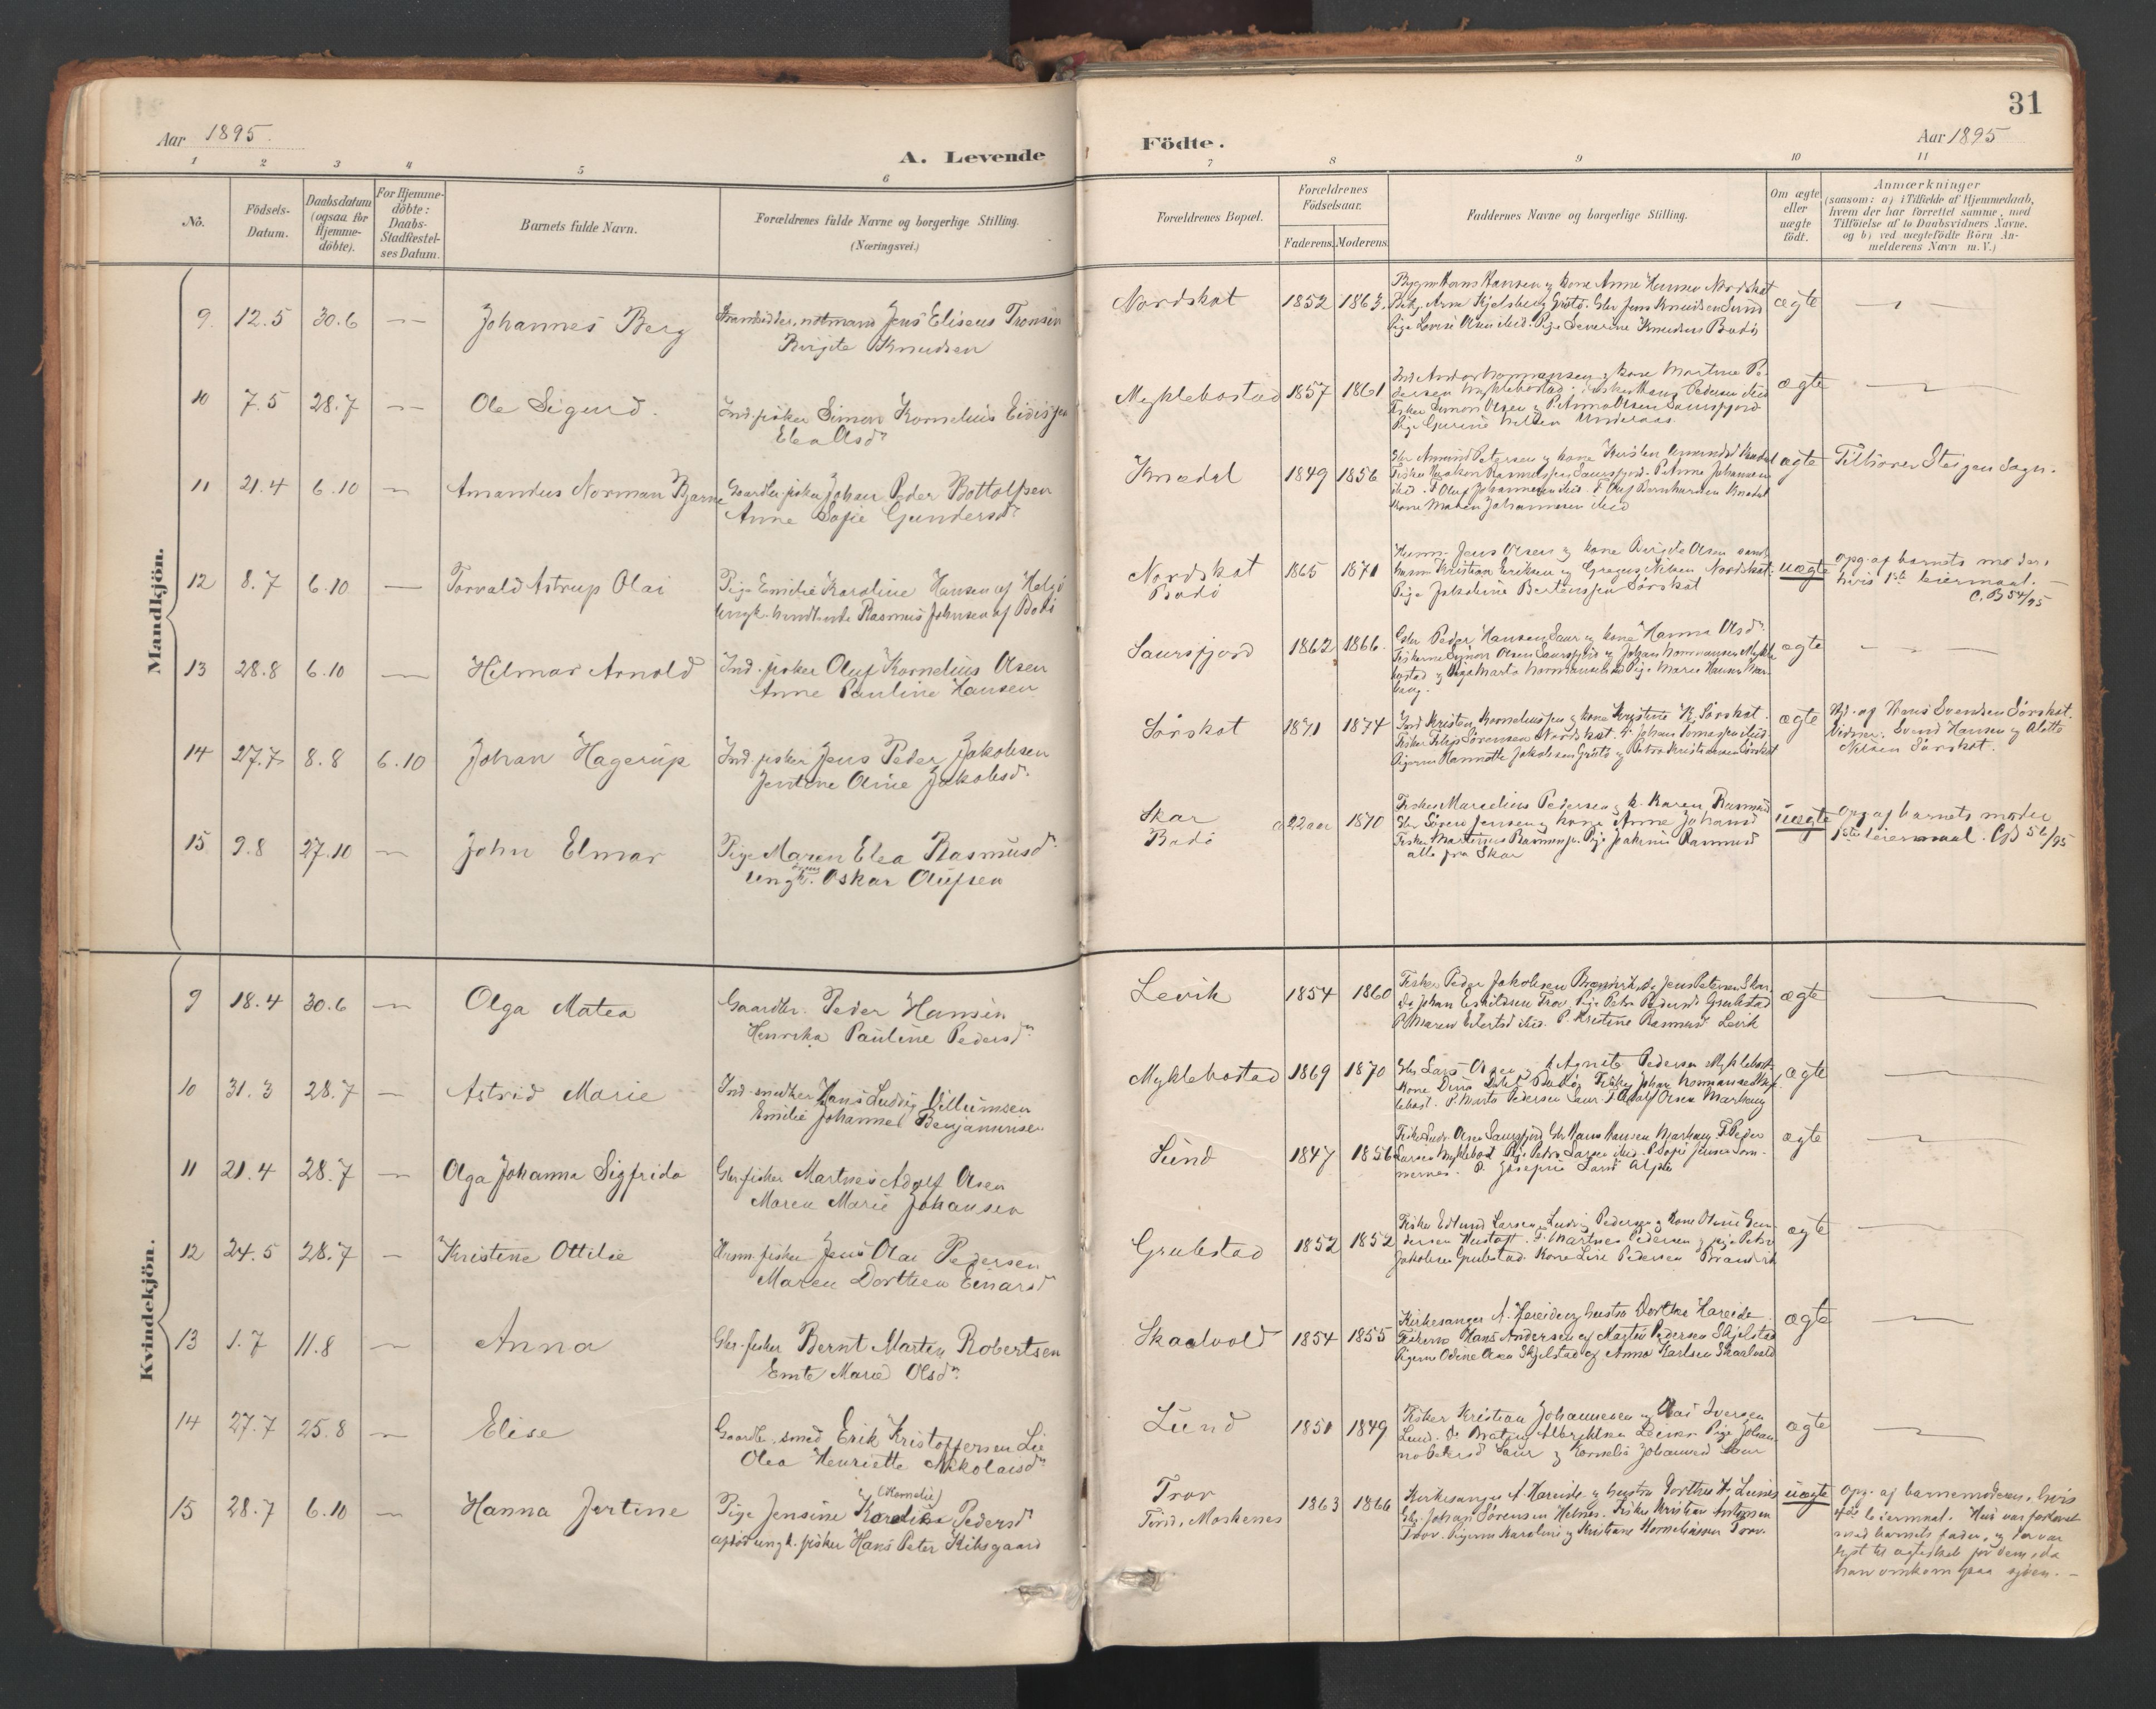 31
Aar 1895.
A. Levende
Födte.
Aar 1895
1 2 3 4 5 6 7 8 9 10 11
No.
Födsels-
Datum.
Daabsdatum
(ogsaa for
Hjemme-
döbte).
For Hjemme-
döbte:
Daabs-
Stadfæstel-
ses Datum.
Barnets fulde Navn.
Forældrenes fulde Navne og borgerlige Stilling.
(Næringsvei.)
Forældrenes Bopæl.
Forældrenes
Födselsaar.
Faderens. Moderens.
Faddernes Navne og borgerlige Stilling.
Om ægte
eller
uægte
födt.
Anmærkninger
(saasom: a) i Tilfælde af Hjemmedaab,
hvem der har forrettet samme, med
Tilföielse af to Daabsvidners Navne.
og b) ved uægtefödte Börn An-
melderens Navn m. V.)
Mandkjön.
9. 12.5 30.6 — Johannes Berg
Strandsidder, notmand Jens Eliseus Tronsen
Birgite Knudsen
Nordskot 1852 1863.
Hans Hansen og kone Anne Hansen Nordskot
Arne Kjelsberg Grötö. Gbr Jens Knudsen Lund
Pige Lovise Olsen ibid. Pige Severine Knudsen Bodö
ægte —
10 7.5 28.7 — Ole Sigurd.
Ind. fisker Simon Kornelius Eidisen
Elea Olsdr
Myklebostad 1857 1861
kone Martine Pe-
dersen Myklebostad. fisker Hans Pedersen ibid
Fisker Simon Olsen & P. Anna Olsen Saursfjord
Pige Gurine Nilsen
ægte —
11 21.4 6.10 — Amandus Norman Bjarne
Gaardbr. fisker Johan Peder Bottolfsen
Anne Sofie Gundersdr
Knædal 1849 1856
Gbr Amund Petersen og kone Kirsten Amundsd Knædal
Fisker Haakon Rasmussen Saursfjord. P. Anne Johansen
ibid. F. Oluf Johannesen ibid. F. Oluf Bernhardsen Knædal
Kone Maren Johannesen ibid
ægte Tilhörer Steigen Sogn.
12 8.7 6.10 — Torvald Astrup Olai
Pige Emilie Karoline Hansen af Helgö
ungk. handlende Rasmus Johnsen af Bodö
Nordskot
Bodö
1865 1871
Husm. Jens Olsen og kone Birgite Olsen samt
husm Kristian Eriksen og Gregus Nilsen Nordskot.
Pige Jakobine Berteussen Sörskot
uægte
opg. af barnets moder,
hvis 1ste leiermaal. —
C. B 54/95
13 28.8 6.10 — Helmar Arnold
Ind. fisker Oluf Kornelius Olsen
Anne Pauline Hansen
Saursfjord 1862 1866.
Gbr Peder Hansen Saur og kone Hanna Olsdr
Fiskerne Simon Olsen Saursfjord og Johan Normansen Mykle-
bostad og Pige Marta Normansen ibid Pige Maria Hansen Mar-
haug.
ægte —
14 27.7 8.8 6.10 Johan Hagerup
Ind. fisker Jens Peder Jakobsen
Jentine Oline Jakobsdr
Sörskot 1871 1874
Ind Kristen Korneliussen og kone Kristine K. Sörskot.
Fisker Filip Sörensen Nordskot. F. Johan Tomassen ibid.
Pigerne Hannette Jakobsen Grötö og Petra Kristiansen Sörskot
ægte
Hjd. af Hans Svendsen Sörskot.
Vidner: Svend Hansen og Alette
Nilsen Sörskot.
15 9.8 27.10 — John Elmar
Pige Maren Elea Rasmusdr
ungk. Oskar Olufsen
Skar
Bodö
22 aar 1870
Fisker Marcelius Pedersen & k. Karen Rasmusd
Gbr Sören Jensen og kone Anne Johansd
Fisker Martinus Rasmussen. Pige Jakobine Rasmusd
alle fra Skar
uægte
Opg af barnets moder
1ste leiermaal. CB 56/95
Kvindekjön.
9 18.4 30.6 — Olga Matea
Gaardbr. Peder Hansen
Henrika Pauline Pedersdr
Levik 1854 1860
Fisker Peder Jakobsen Brændvik, do Jens Petersen Skar
do Johan Eskildsen Trov, Pige Petra Pedersd Grubstad
P. Maren Evertsd ibid. P. Kristine Rasmusd Levik
ægte —
10 31.3 28.7 — Astrid Marie
Ind. snedker Hans Ludvig Villumsen
Emilie Johanne Benjaminsen
Myklebostad 1869 1870
Gbr Lars Olsen og k Agnete Pedersen Myklebost.
Kone Dina Bodö, Fisker Johan Normansen Myk-
lebost. P. Marta Pedersen Saur. F. Adolf Olsen Marhaug
ægte —
11 21.4 28.7 — Olga Johanna Sigfrida
Gbr. fisker Martines Adolf Olsen
Maren Marie Johansen
Lund 1847 1856
Fisker Ludv. Olsen Saursfjord Gbr Hans Hansen Marhaug. F. Peder
Larsen Myklebost. Pige Petra Larsen ibid. P. Sofie Jensen Som-
mernes. P. Josefine
ægte —
12 24.5 28.7 — Kristine Ottilie
Husm. fisker Jens Olai Pedersen
Maren Dorthea Einarsdr
Grubstad 1852 1852
Fisker Edlund Larsen, Ludvig Pedersen og kone Oline
F. Martines Pedersen og pige Petra
Jakobsen Grubstad. Kone Lise Pedersen Brændvik
ægte —
13 1.7 11.8 — Anna
Gbr. fisker Bernt Martin Robertsen
Emte Marie Olsdr
Skaalvold 1854 1855
Kirkesanger A. Hareide og hustru Dorthea Hareide
Fiskerne Hans Andersen og Martin Pedersen Skjelstad
Pigerne Odine Olsen Skjelstad og Anna Karlsen Skaalvold
ægte —
14 27.7 25.8 — Elise
Gaardbr. smed Erik Kristoffersen Lie
Olea Henriette Nikolaisdr
Lund 1850 1849
Fisker Kristian Johannesen og Olai Iversen
Lund. Pige Johan-
Saur og Kornelia Johansd Saur
ægte —
15 28.7 6.10 — Hanna Jertine
(Kornelie)
Pige Jensine Karoline Pedersdr
afdöd ungk. fisker Hans Peter Kiksgaard
Trov
Tind, Moskenes
1863 1866
Kirkesanger A Hareide og hustru Dorthea H, Leines
Gbr. Johan Sörensen Helnes. Fisker Kristian Antonsen
Trov. Pigerne Karoline og Kristiane Korneliussen Trov.
uægte
Opg. af barnemoderen, hvis
leiermaal. Hun var forlovet
med barnets fader, og der var
lyst til ægteskab for dem, da
han omkom paa sjöen. —